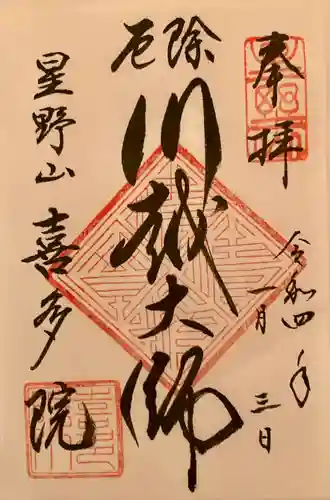 奉拝
令和四年
一月三日
除厄
川越大師
星野山
喜多院